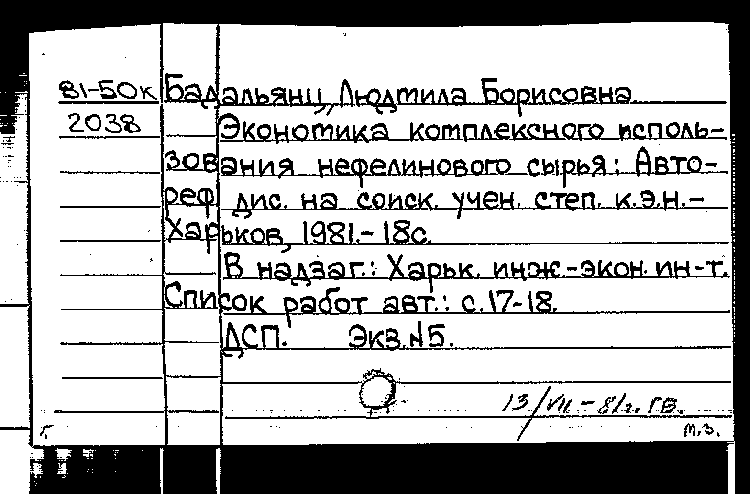 81-50к Бадальянц, Людмила Борисовна
2038 Экономика комплексного исполь-
зования нефелинового сырья: Авто-
реф. дис. на соиск. учен. степ. к.э.н.-
Харьков, 1981.- 18с.
В надзаг.: Харьк. инж.-экон. ин-т.
Список работ авт.: с.17-18.
ДСП. Экз.№5.
13/VII - 81г. ГВ.
Г. т.з.